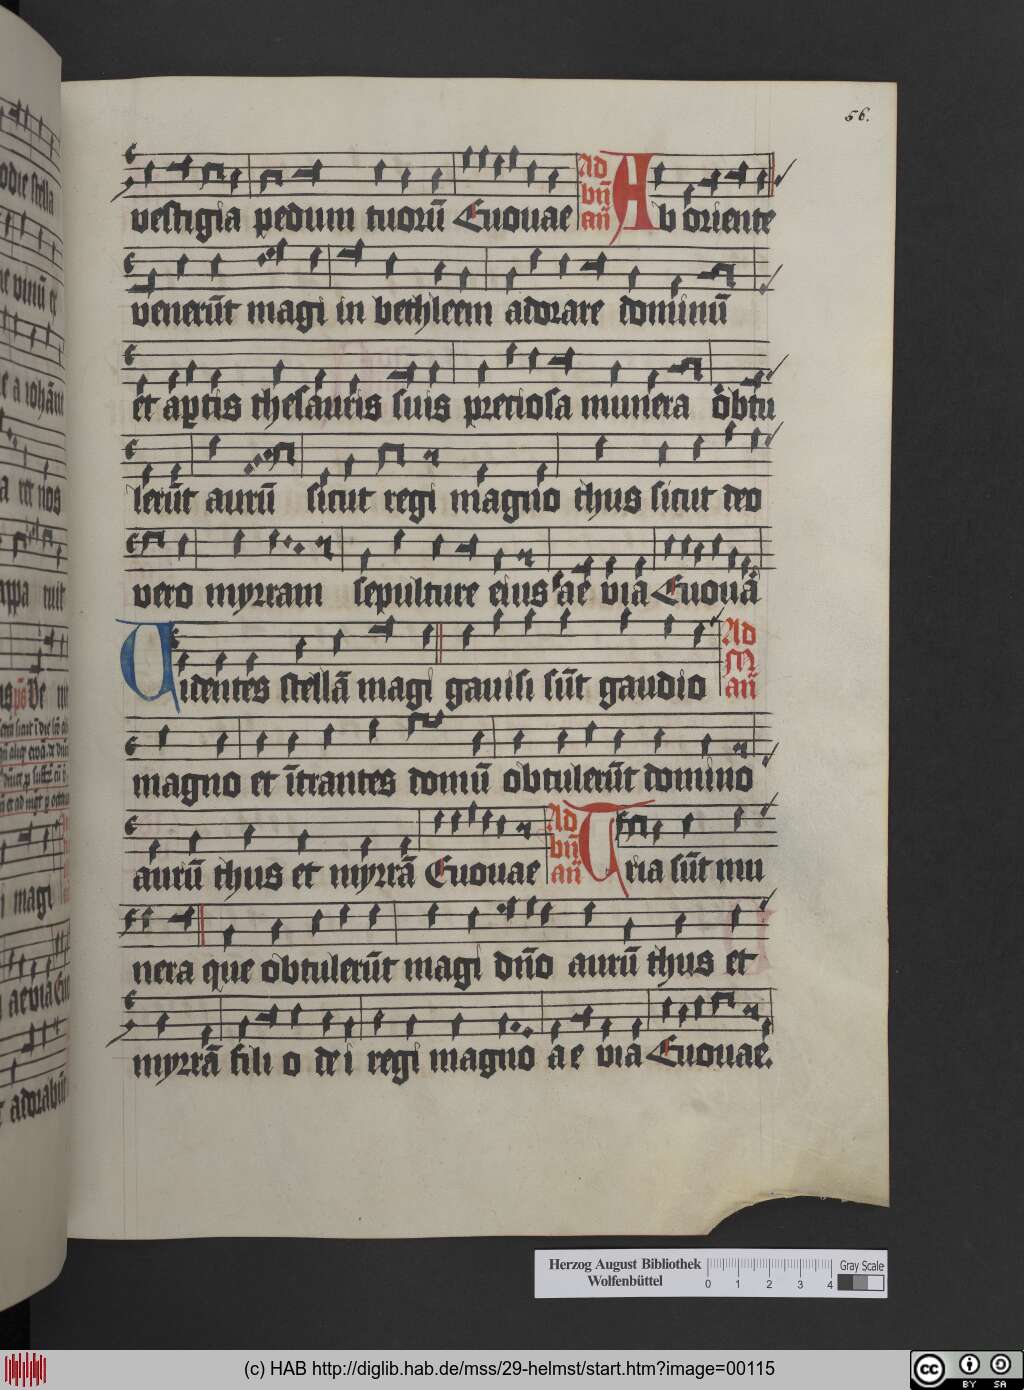 56.
vestigia pedum tuorū Euouae Ad bn̄ an̄ Ab oriente
venerūt magi in bethleem adorare dominū
et aptis thesauris suis preciosa munera obtu
lerūt aurū sicut regi magno thus sicut deo
vero myrram sepulture eius ae via Euouā
Uidentes stellā magi gauisi sūt gaudio Ad M an̄
magno et ītrantes domū obtulerūt domino
aurū thus et myrrā Euouae Ad bn̄ an̄ Tria sūt mu
nera que obtulerūt magi dn̄o aurū thus et
myrrā fili o dei regi magno ae via Euouae.
Herzog August Bibliothek
Wolfenbüttel
0 1 2 3 4
Gray Scale
(c) HAB http://diglib.hab.de/mss/29-helmst/start.htm?image=00115
cc BY SA